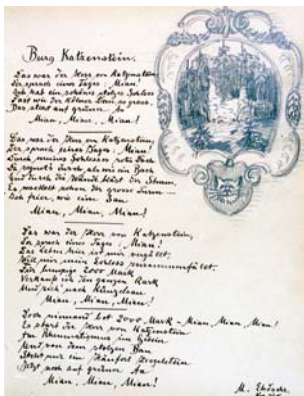 Burg Katzenstein.
Das war der Herr von Katzenstein,
Der sprach eines Tages: Miau!
Ich hab ein schönes stolzes Schloss
Fast wie der Kölner Dom so gross,
Das steht auf grüner Au
Miau, Miau, Miau!
Das war der Herr von Katzenstein,
Der sprach eines Tages, Miau!
Durch meines Schlosses rotes Dach
Da regnets durch als wie ein Bach
Und durch die Wände bläst der Sturm,
Es wackelt schon der grosse Turm
Ich frier, wie eine Sau
Miau, Miau, Miau!
Das war der Herr von Katzenstein,
Der sprach eines Tages, Miau!
Das Leben hier ist mir vergällt,
Weil mir mein Schloss zusammenfällt.
Für lumpige 2000 Mark
Verkauf ich den ganzen Park
Und zieh nach
Miau, Miau, Miau!
Doch niemand bot 2000 Mark - Miau Miau Miau!
Es starb der Herr von Katzenstein
Am Rheumatismus im Gebein
Und von dem stolzen Bau
Steht nur ein Ziegelstein
Jetzt noch auf grüner Au
Miau, Miau, Miau!
M.